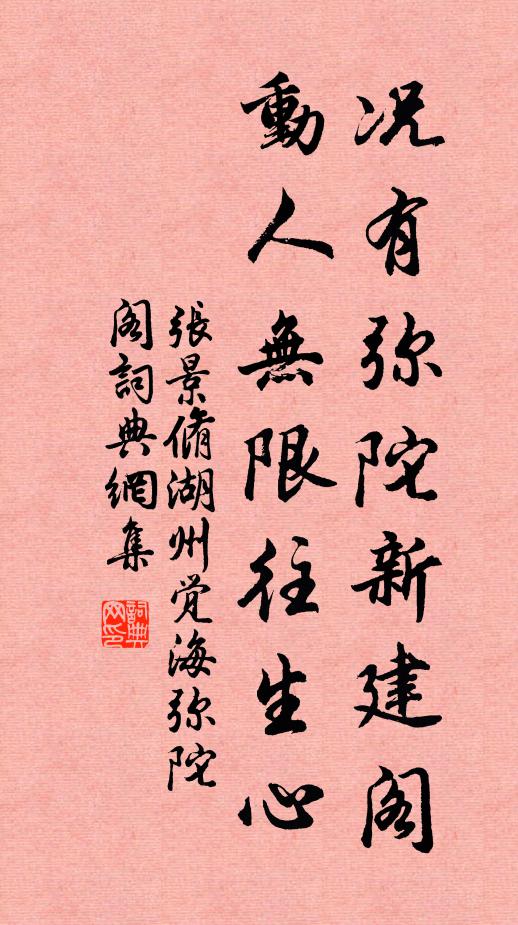 况有弥陀新建阁
動人無限往生心
張景脩湖州覚海弥陀
阁詞典網集
詞典網印